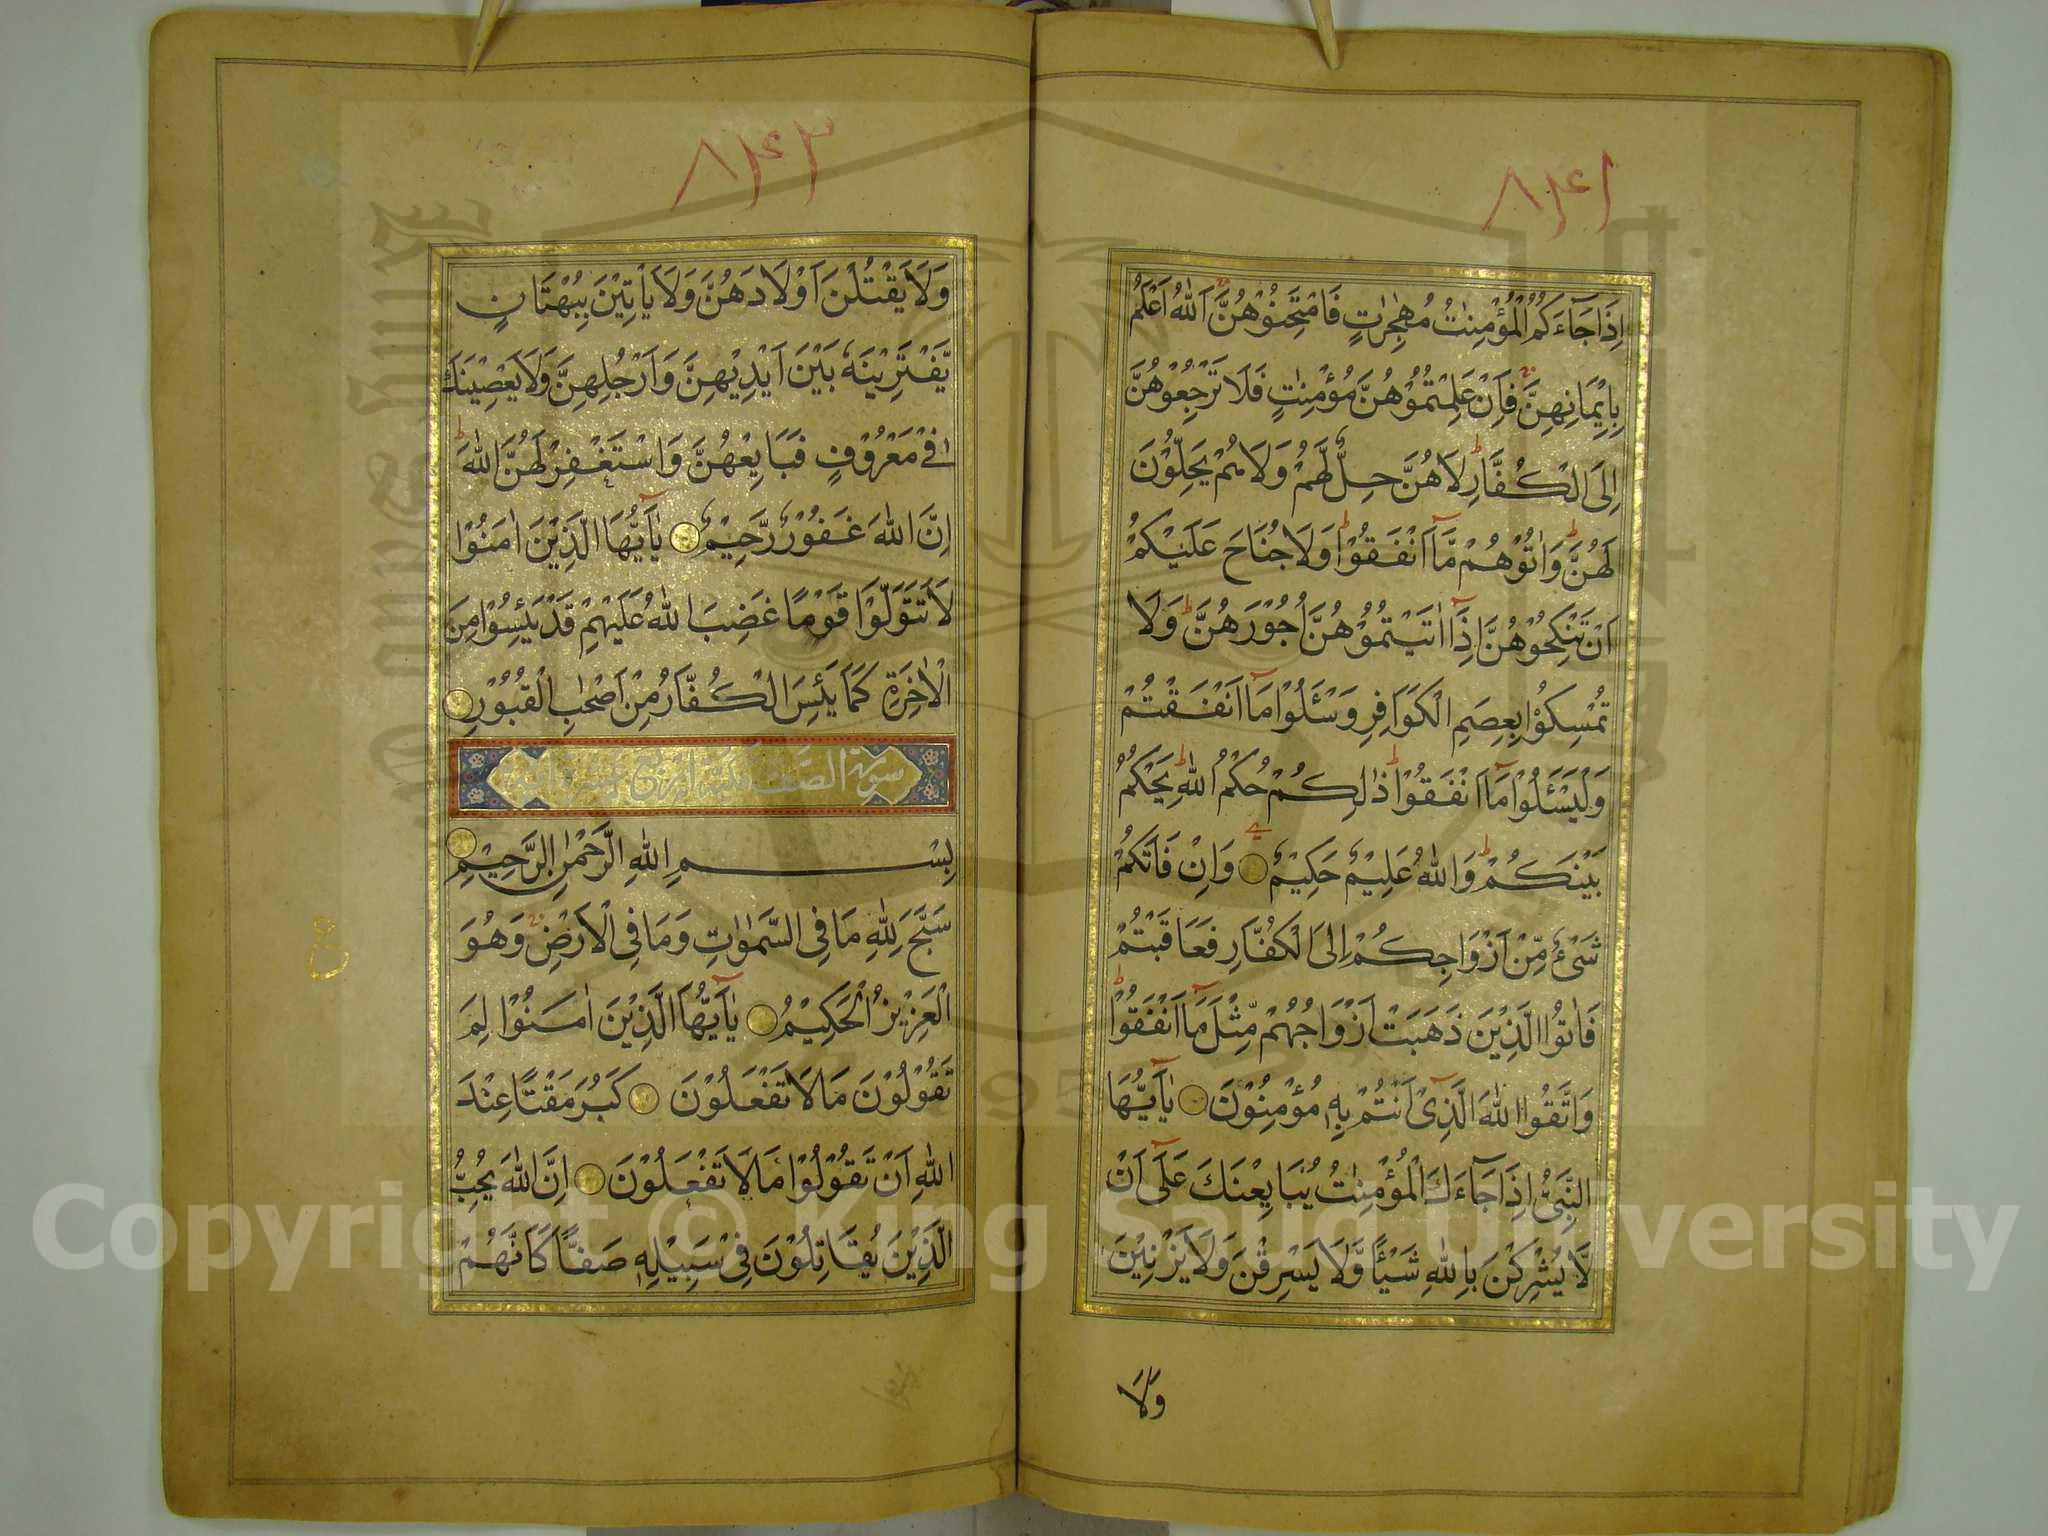 ۸۴۱
اِذَا جَآءَكُمُ الْمُؤْمِنٰتُ مُهٰجِرٰتٍ فَامْتَحِنُوْهُنَّ اَللّٰهُ اَعْلَمُ
بِاِيْمَانِهِنَّ فَاِنْ عَلِمْتُمُوْهُنَّ مُؤْمِنٰتٍ فَلَا تَرْجِعُوْهُنَّ
اِلَى الْكُفَّارِ لَا هُنَّ حِلٌّ لَّهُمْ وَلَا هُمْ يَحِلُّوْنَ
لَهُنَّ وَاٰتُوْهُمْ مَّآ اَنْفَقُوْا وَلَا جُنَاحَ عَلَيْكُمْ
اَنْ تَنْكِحُوْهُنَّ اِذَآ اٰتَيْتُمُوْهُنَّ اُجُوْرَهُنَّ وَلَا
تُمْسِكُوْا بِعِصَمِ الْكَوَافِرِ وَسْـَٔلُوْا مَآ اَنْفَقْتُمْ
وَلْيَسْـَٔلُوْا مَآ اَنْفَقُوْا ذٰلِكُمْ حُكْمُ اللّٰهِ يَحْكُمُ
بَيْنَكُمْ وَاللّٰهُ عَلِيْمٌ حَكِيْمٌ وَاِنْ فَاتَكُمْ
شَىْءٌ مِّنْ اَزْوَاجِكُمْ اِلَى الْكُفَّارِ فَعَاقَبْتُمْ
فَاٰتُوا الَّذِيْنَ ذَهَبَتْ اَزْوَاجُهُمْ مِّثْلَ مَآ اَنْفَقُوْا
وَاتَّقُوا اللّٰهَ الَّذِىْٓ اَنْتُمْ بِهٖ مُؤْمِنُوْنَ يٰٓاَيُّهَا
النَّبِىُّ اِذَا جَآءَكَ الْمُؤْمِنٰتُ يُبَايِعْنَكَ عَلٰٓى اَنْ
لَّا يُشْرِكْنَ بِاللّٰهِ شَيْـًٔا وَّلَا يَسْرِقْنَ وَلَا يَزْنِيْنَ
وَلَا
۸۴۲
وَلَا يَقْتُلْنَ اَوْلَادَهُنَّ وَلَا يَاْتِيْنَ بِبُهْتَانٍ
يَّفْتَرِيْنَهٗ بَيْنَ اَيْدِيْهِنَّ وَاَرْجُلِهِنَّ وَلَا يَعْصِيْنَكَ
فِىْ مَعْرُوْفٍ فَبَايِعْهُنَّ وَاسْتَغْفِرْ لَهُنَّ اللّٰهَ
اِنَّ اللّٰهَ غَفُوْرٌ رَّحِيْمٌ يٰٓاَيُّهَا الَّذِيْنَ اٰمَنُوْا
لَا تَتَوَلَّوْا قَوْمًا غَضِبَ اللّٰهُ عَلَيْهِمْ قَدْ يَئِسُوْا مِنَ
الْاٰخِرَةِ كَمَا يَئِسَ الْكُفَّارُ مِنْ اَصْحٰبِ الْقُبُوْرِ
سورة الصف مكية اربع عشرة اية
بِسْمِ اللّٰهِ الرَّحْمٰنِ الرَّحِيْمِ
سَبَّحَ لِلّٰهِ مَا فِى السَّمٰوٰتِ وَمَا فِى الْاَرْضِ وَهُوَ
الْعَزِيْزُ الْحَكِيْمُ يٰٓاَيُّهَا الَّذِيْنَ اٰمَنُوْا لِمَ
تَقُوْلُوْنَ مَا لَا تَفْعَلُوْنَ كَبُرَ مَقْتًا عِنْدَ
اللّٰهِ اَنْ تَقُوْلُوْا مَا لَا تَفْعَلُوْنَ اِنَّ اللّٰهَ يُحِبُّ
الَّذِيْنَ يُقَاتِلُوْنَ فِىْ سَبِيْلِهٖ صَفًّا كَاَنَّهُمْ
ع
Copyright © King Saud University